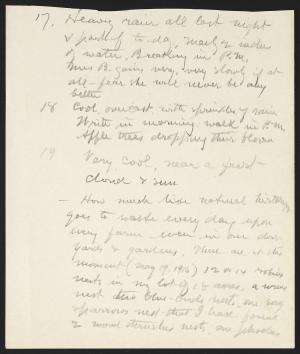 17. Heavy rain all last night
& part of to-day, nearly
of water. Breaking in P.M.
Mrs B. gains very, very slowly if at
all - fear she will never be any
better
18 Cool, overcast with sprinkle of rain
Write in morning, walk in P.M.
Apple trees dropping their bloom
19 Very cool, near a frost
cloud & sun
- How much live natural history
goes to waste every day upon
every farm - even in our door
yards & gardens. There are at this
moment (May 19, 1916) 12 or 14 robins
nests in my lot of 18 acres, a wrens
nest, two blue-birds nests, one song
sparrows nest that I have found
& wood thrushes nests, one